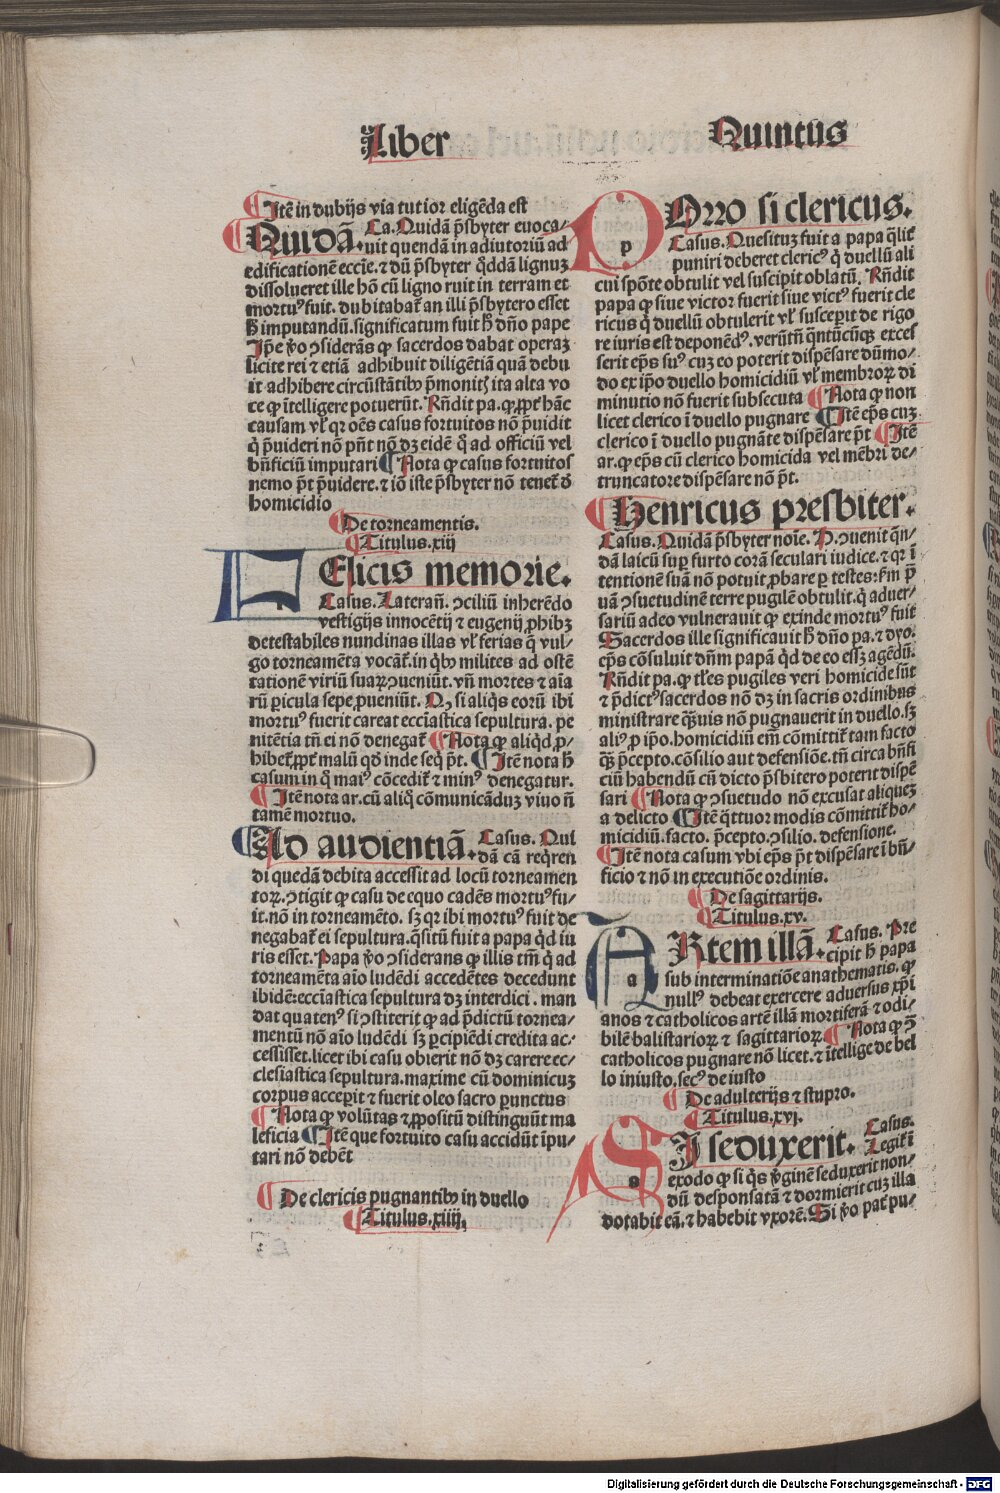 Liber
Quintus
Itē in dubijs via tutior eligēda est
Quidā. Ca. Quidā p̄sbyter euoca/
uit quendā in adiutoriū ad
edificationē eccīe. ⁊ dū p̄sbyter q̄ddā lignuꝫ
dissolueret ille hō cū ligno ruit in terram et
mortuꝰ fuit. dubitabat̄ an illi p̄sbytero esset
h̄ imputandū. significatum fuit h̄ dn̄o pape
Ip̄e v̄o ↄsiderās ꝙ sacerdos dabat operaꝫ
licite rei ⁊ etiā adhibuit diligētiā quā debu
it adhibere circūstātibꝰ p̄monitꝭ ita alta vo
ce ꝙ ītelligere potuerūt. Rn̄dit pa. ꝙ ꝓpt̄ hāc
causam vl̓ qꝛ oēs casus fortuitos nō p̄uidit
q̄ p̄uideri nō pn̄t nō dꝫ eidē q̄ ad officiū vel
bn̄ficiū imputari ¶ Nota ꝙ casus fortuitos
nemo p̄t p̄uidere. ⁊ iō iste p̄sbyter nō tenet̄ d̄
homicidio
¶ De torneamentis.
¶ Titulus. xiij
FElicis memorie.
Casus. Laterań. ↄciliū inherēdo
vestigijs innocētij ⁊ eugenij ꝓhibꝫ
detestabiles nundinas illas vl̓ ferias q̄ vul/
go torneamēta vocāt̄. in qͥbꝰ milites ad ostē
tationē viriū suaꝝ ↄueniūt. vn̄ mortes ⁊ aīa
rū ꝑicula sepe ꝓueniūt. Qꝫ si aliq̄s eorū ibi
mortuꝰ fuerit careat ecclīastica sepultura. pe
nitētia tn̄ ei nō denegat̄ ¶ Nota ꝙ aliq̄d ꝓ/
hibet̄ ꝓpt̄ malū qd̄ inde seq̄ p̄t. ¶ Itē nota h̄
casum in q̄ maiꝰ cōcedit̄ ⁊ minꝰ denegatur.
¶ Itē nota ar. cū aliq̄ cōmunicāduꝫ viuo n̄
tamē mortuo.
¶ Ad audientiā. Casus. Qui
dā cā req̄ren
di quedā debita accessit ad locū torneamen
toꝝ. ↄtigit ꝙ casu de equo cadēs mortuꝰ fu/
it. nō in torneamēto. sꝫ qꝛ ibi mortuꝰ fuit de
negabat̄ ei sepultura. q̄situ fuit a papa q̄d iu
ris esset. Papa v̄o ↄsiderans ꝙ illis tm̄ q̄ ad
torneamēta aīo ludēdi accedētes decedunt
ibidē: ecclīastica sepultura dꝫ interdici. man
dat quatenꝰ si ↄstiterit ꝙ ad p̄dictū tornea/
mentū nō aīo ludēdi sꝫ ꝑcipiēdi credita ac/
cessisset. licet ibi casu obierit nō dꝫ carere ec/
clesiastica sepultura. maxime cū dominicuꝫ
corpus acceꝑit ⁊ fuerit oleo sacro ꝑunctus
¶ Nota ꝙ volūtas ⁊ ꝓpositū distinguūt ma
leficia ¶ Itē que fortuito casu accidūt īpu/
tari nō debēt
¶ De clericis pugnantibꝰ in duello
¶ Titulus. xiiij.
POrro si clericus.
Casus. Quesituꝫ fuit a papa q̄lit̄
puniri deberet clericꝰ q̄ duellū ali
cui spōte obtulit vel suscipit oblatū. Rn̄dit
papa ꝙ siue victor fuerit siue victꝰ fuerit cle
ricus q̄ duellū obtulerit vl̓ susceꝑit de rigo
re iuris est deponēdꝰ. verūtn̄ q̄ntūcūqꝫ exces
serit ep̄s suꝰ cuꝫ eo poterit dispēsare dūmo/
do ex ip̄o duello homicidiū vl̓ membroꝝ di
minutio nō fuerit subsecuta ¶ Nota ꝙ non
licet clerico ī duello pugnare ¶ Itē ep̄s cuꝫ
clerico ī duello pugnāte dispēsare p̄t ¶ Itē
ar. ꝙ ep̄s cū clerico homicida vel mēbri de/
truncatore dispēsare nō p̄t.
¶ Henricus presbiter.
Casus. Quidā p̄sbyter noīe. P. ↄuenit q̄n/
dā laicū suꝑ furto corā seculari iudice. ⁊ qꝛ ī
tentionē suā nō potuit ꝓbare ꝑ testes: fm̄ p̄
uā ↄsuetudinē terre pugilē obtulit. q̄ aduer/
sariū adeo vulnerauit ꝙ exinde mortuꝰ fuit
Sacerdos ille significauit h̄ dn̄o pa. ⁊ dyo.
ep̄s cōsuluit dn̄m papā q̄d de eo essꝫ agēdū.
Rn̄dit pa. ꝙ tl̓es pugiles veri homicide sūt
⁊ p̄dictꝰ sacerdos nō dꝫ in sacris ordinibus
ministrare q̄ꝫuis nō pugnauerit in duello. sꝫ
aliꝰ ꝓ ip̄o. homicidiū em̄ cōmittit̄ tam facto
q̄ꝫ p̄cepto. cōsilio aut defensiōe. tn̄ circa bn̄fi
ciū habendū cū dicto p̄sbitero poterit dispē
sari ¶ Nota ꝙ ↄsuetudo nō excusat aliqueꝫ
a delicto ¶ Itē q̄ttuor modis cōmittit̄ ho/
micidiū. facto. p̄cepto. ↄsilio. defensione.
¶ Itē nota casum vbi ep̄s p̄t dispēsare ī bn̄/
ficio ⁊ nō in executiōe ordinis.
¶ De sagittarijs.
¶ Titulus. xv.
ARtem illā. Casus. Pre
cipit h̄ papa
sub interminatiōe anathematis. ꝙ
nullꝰ debeat exercere aduersus xp̄i
anos ⁊ catholicos artē illā mortiferā ⁊ odi/
bilē balistarioꝝ ⁊ sagittarioꝝ ¶ Nota ꝙ ↄ̄
catholicos pugnare nō licet. ⁊ ītellige de bel
lo iniusto. secꝰ de iusto
¶ De adulterijs ⁊ stupro.
¶ Titulus. xvj.
SI seduxerit. Casus.
Legit̄ ī
exodo ꝙ si q̄s v̄ginē seduxerit non/
dū desponsatā ⁊ dormierit cuꝫ illa
dotabit eā. ⁊ habebit vxorē. Si v̄o pat̄ pu/
Digitalisierung gefördert durch die Deutsche Forschungsgemeinschaft - DFG